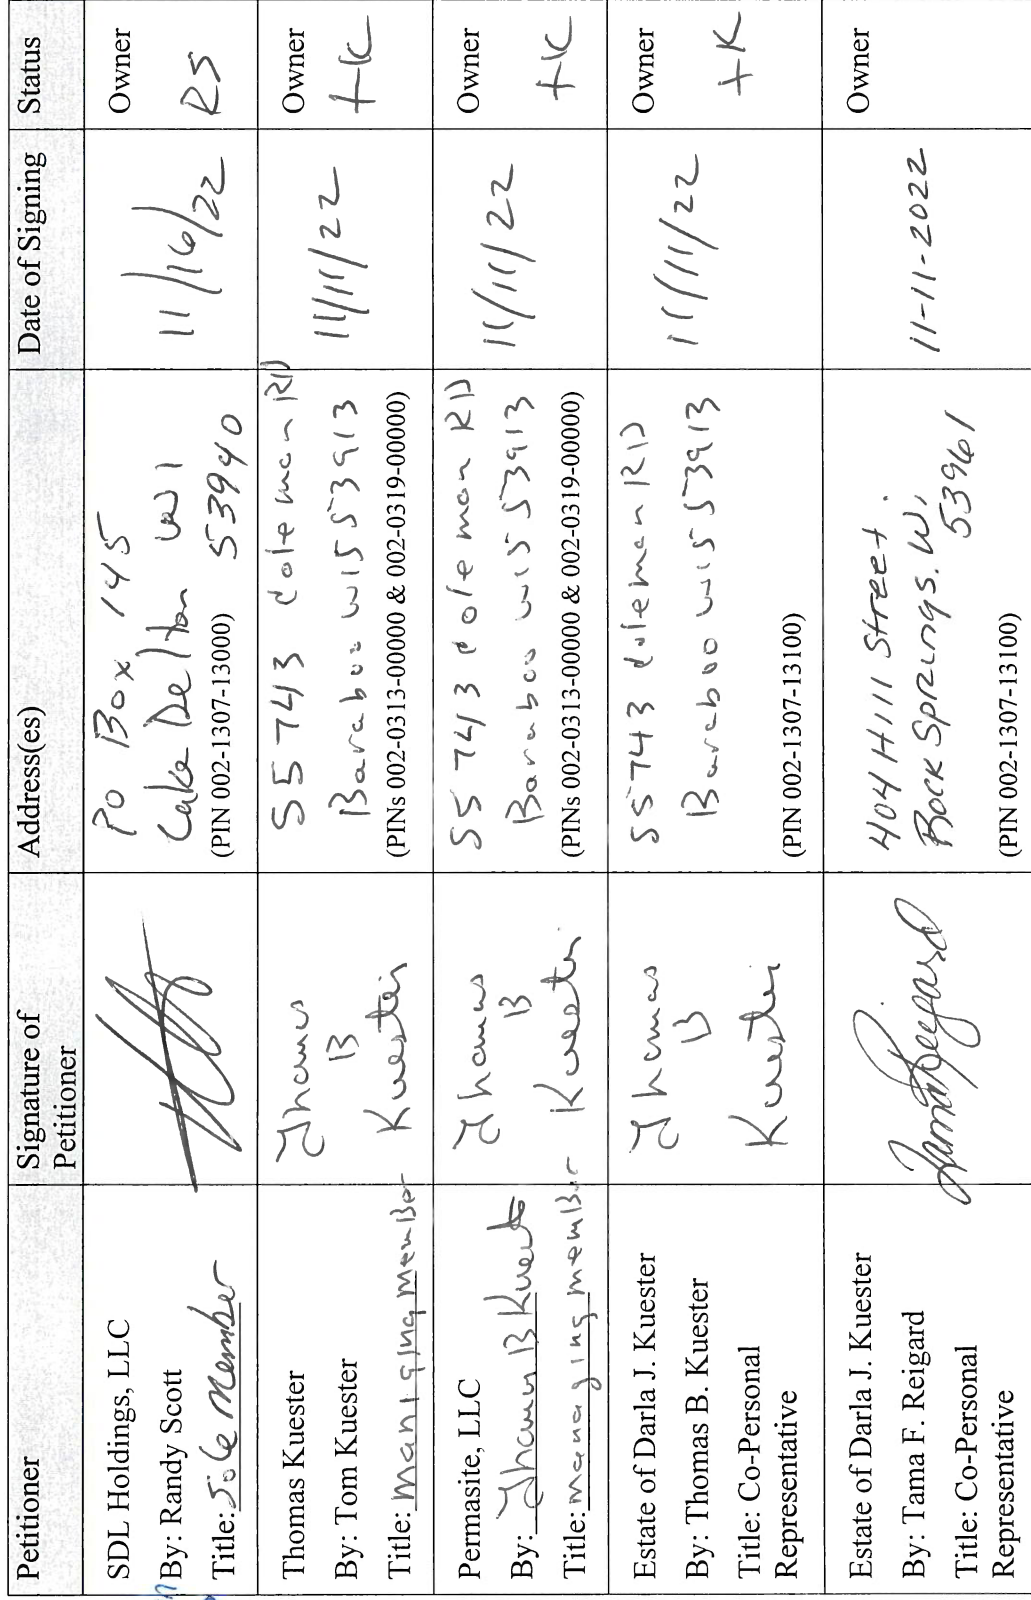 Petitioner
Signature of
Petitioner
Address(es)
Date of Signing
Status
SDL Holdings, LLC
By: Randy Scott
Title: Sole Member
PO Box 145
Lake Delton WI
53940
(PIN 002-1307-13000)
11/16/22
Owner
RS
Thomas Kuester
By: Tom Kuester
Title: Maniging MemBer
Thomas
B
Kuester
S5743 Coleman RD
Baraboo WI 53913
(PINs 002-0313-00000 & 002-0319-00000)
11/11/22
Owner
TK
Permasite, LLC
By: Thomas B Kuester
Title: managing memBer
Thomas
B
Kuester
S5743 Coleman RD
Baraboo WI 53913
(PINs 002-0313-00000 & 002-0319-00000)
11/11/22
Owner
TK
Estate of Darla J. Kuester
By: Thomas B. Kuester
Title: Co-Personal
Representative
Thomas
B
Kuester
S5743 Coleman RD
Baraboo WI 53913
(PIN 002-1307-13100)
11/11/22
Owner
TK
Estate of Darla J. Kuester
By: Tama F. Reigard
Title: Co-Personal
Representative
Tama Reigard
404 Hill Street
Rock Springs. Wi.
53961
(PIN 002-1307-13100)
11-11-2022
Owner